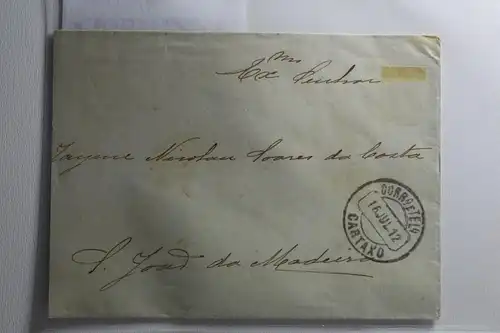 Exmo Senhor
Jayme Nicolau Soares da Costa
CORREIO E TELEG
16 JUL. 12
CARTAXO
S. João da Madeira